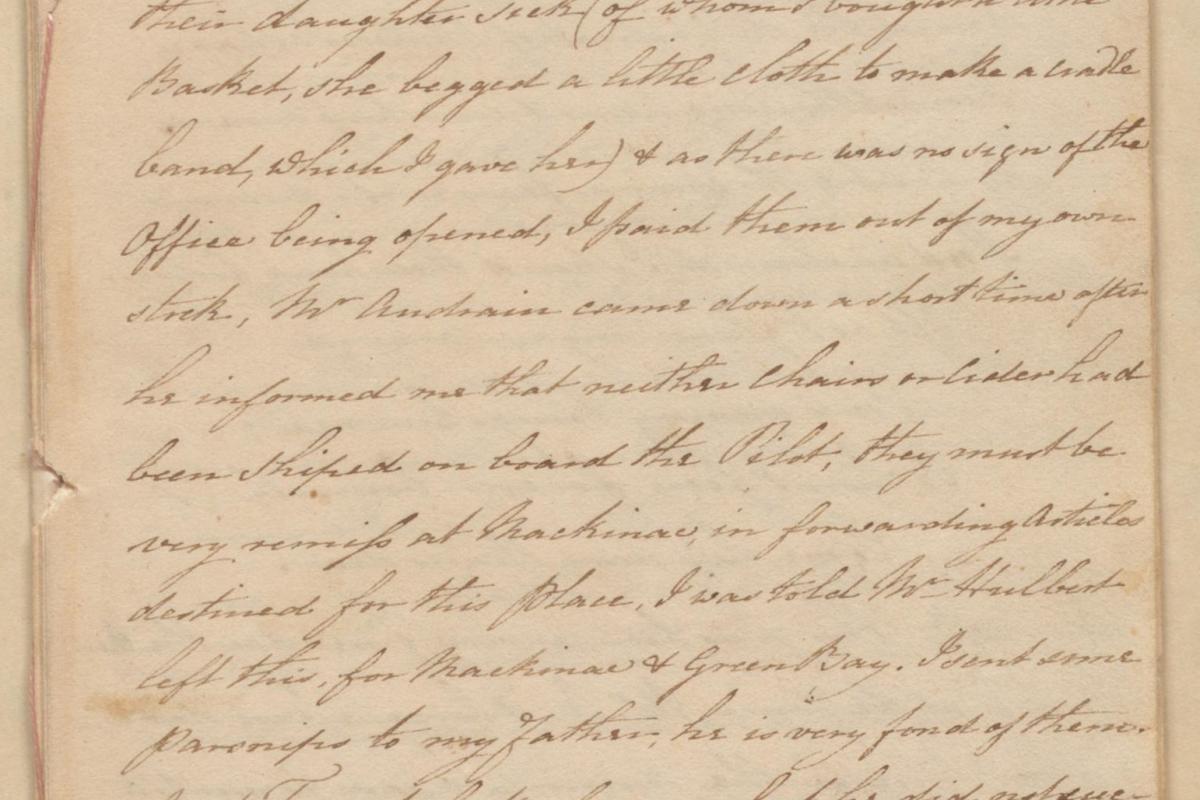 their daughter sick (of whom I bought a little
Basket, she begged a little Cloth to make a cradle
band, which I gave her) & as there was no sign of the
Office being opened, I paid them out of my own
stock, Mr Audrain came down a short time after
he informed me that neither Chairs or Cider had
been Shiped on board the Pilot, they must be
very remiss at Mackinac, in forwarding Articles
destined for this Place, I was told Mr Hulbert
left this, for Mackinac & Green Bay. I sent some
Parsnips to my Father, he is very fond of them.
he did not